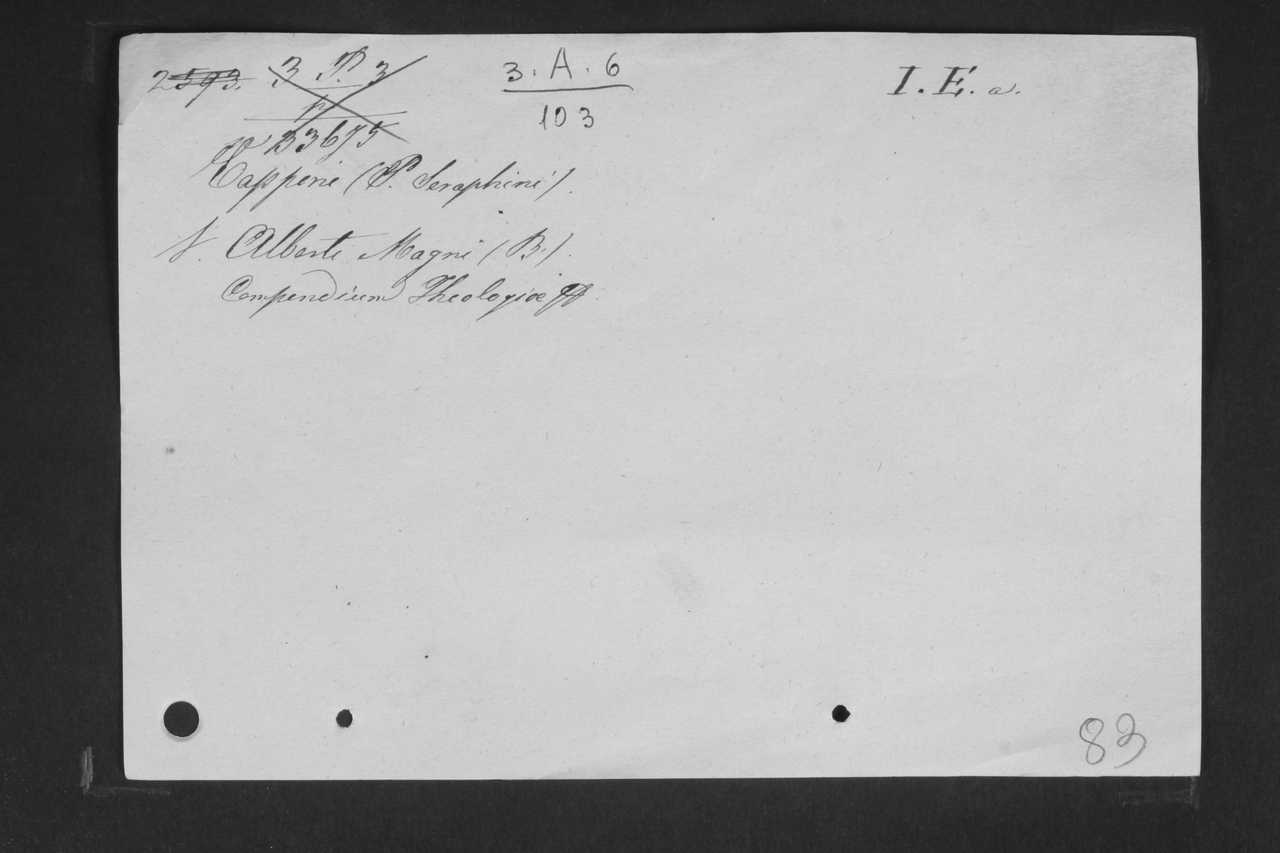 2593. 3 P 3 3.A.6 I.E.a.
103
B3675
Capponi (P. Seraphini).
V. Alberti Magni (B.).
Compendium Theologiæ
83